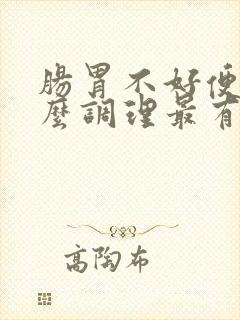 腸胃不好便
麼調理最有
高陶布